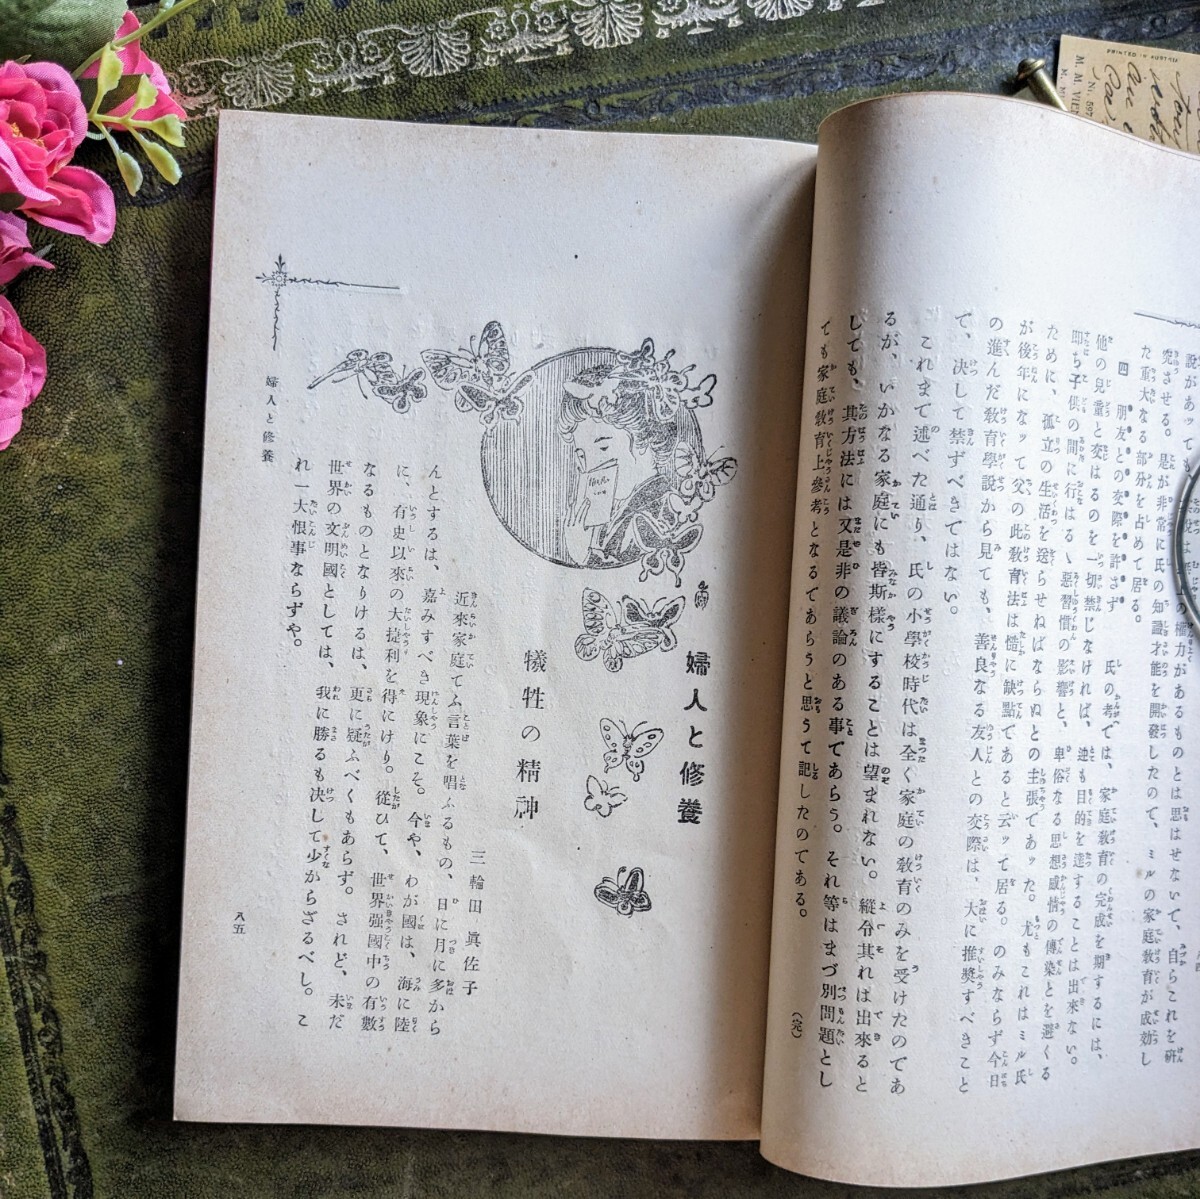 究させる。是が非常に氏の知識才能を開發したので、ミルの家庭教育が成効し
た重大なる部分を占めて居る。
四　朋友との交際を許さず　氏の考では、家庭教育の完成を期するには、
他の兒童と交はるのを一切禁じなければ、迚も目的を達することは出來ない。
即ち子供の間に行はるゝ惡習慣の影響と、卑俗なる思想感情の傳染とを避くる
ために、孤立の生活を送らせねばならぬとの主張であッた。尤もこれはミル氏
が後年になッて父の此教育法は慥に缺點であると云ッて居る。のみならず今日
の進んだ教育學說から見ても、善良なる友人との交際は、大に推奬すべきこと
で、決して禁ずべきではない。
これまで述べた通り、氏の小學校時代は全く家庭の教育のみを受けたのであ
るが、いかなる家庭にも皆斯樣にすることは望まれない。縱令其れは出來ると
しても、其方法には又是非の議論のある事であらう。それ等はまづ別問題とし
ても家庭教育上參考となるであらうと思うて記したのである。
（完）
婦人と修養
犧牲の精神
三輪田眞佐子
近來家庭てふ言葉を唱ふるもの、日に月に多から
んとするは、嘉みすべき現象にこそ。今や、わが國は、海に陸
に、有史以來の大捷利を得にけり。從ひて、世界强國中の有數
なるものとなりけるは、更に疑ふべくもあらず。されど、未だ
世界の文明國としては、我に勝るも決して少からざるべし。こ
れ一大恨事ならずや。
婦人と修養
八五
PRINTED IN AUSTRIA